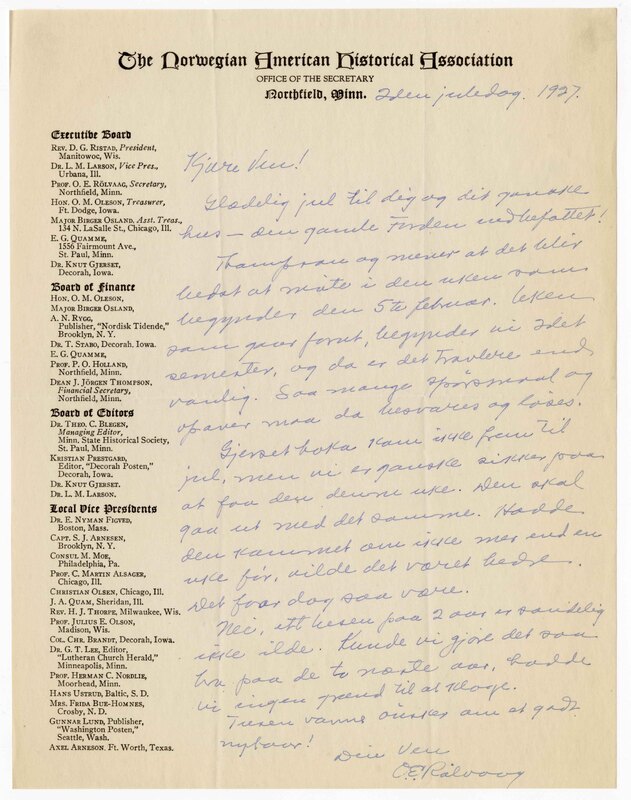 The Norwegian American Historical Association
OFFICE OF THE SECRETARY
Northfield, Minn.
2den juledag. 1927.
Executive Board
REV. D. G. RISTAD, President,
Manitowoc, Wis.
DR. L. M. LARSON, Vice Pres.,
Urbana, Ill.
PROF. O. E. RÖLVAAG, Secretary,
Northfield, Minn.
HON. O. M. OLESON, Treasurer,
Ft. Dodge, Iowa.
MAJOR BIRGER OSLAND, Asst. Treas.,
134 N. LaSalle St., Chicago, Ill.
E. G. QUAMME,
1556 Fairmount Ave.,
St. Paul, Minn.
DR. KNUT GJERSET,
Decorah, Iowa.
Board of Finance
HON. O. M. OLESON,
MAJOR BIRGER OSLAND,
A. N. RYGG,
Publisher, "Nordisk Tidende,"
Brooklyn, N. Y.
DR. T. STABO, Decorah, Iowa.
E. G. QUAMME,
PROF. P. O. HOLLAND,
Northfield, Minn.
DEAN J. JÖRGEN THOMPSON,
Financial Secretary,
Northfield, Minn.
Board of Editors
DR. THEO. C. BLEGEN,
Managing Editor,
Minn. State Historical Society,
St. Paul, Minn.
KRISTIAN PRESTGARD,
Editor, "Decorah Posten,"
Decorah, Iowa.
DR. KNUT GJERSET.
DR. L. M. LARSON.
Local Vice Presidents
DR. E. NYMAN FIGVED,
Boston, Mass.
CAPT. S. J. ARNESEN,
Brooklyn, N. Y.
CONSUL M. MOE,
Philadelphia, Pa.
PROF. C. MARTIN ALSAGER,
Chicago, Ill.
CHRISTIAN OLSEN, Chicago, Ill.
J. A. QUAM, Sheridan, Ill.
REV. H. J. THORPE, Milwaukee, Wis.
PROF. JULIUS E. OLSON,
Madison, Wis.
COL. CHR. BRANDT, Decorah, Iowa.
DR. G. T. LEE, Editor,
"Lutheran Church Herald,"
Minneapolis, Minn.
PROF. HERMAN C. NORDLIE,
Moorhead, Minn.
HANS USTRUD, Baltic, S. D.
MRS. FRIDA BUE-HOMNES,
Crosby, N. D.
GUNNAR LUND, Publisher,
"Washington Posten,"
Seattle, Wash.
AXEL ARNESON. Ft. Worth, Texas.
Kjære Ven!
Glædelig jul til dig og dit ganske
hus — den gamle Forden indbefattet!
og mener at det blir
bedst at møte i den uken som
begynder den 5te februar. Uken
som gaar forut, begynder vi 2det
semester, og da er det travlere end
vanlig. Saa mange spörsmaal og
opgaver maa da besvares og löses.
Gjerset boka kom ikke frem til
jul, men vi er ganske sikker paa
at faa den denne uke. Den skal
gaa ut med det samme. Hadde
den kommet om ikke mer end en
uke før, vilde det været bedre.
Det faar dog saa være.
Nei, ett tusen paa 2 aar er sandelig
ikke ilde. Kunde vi gjøre det saa
bra paa de to næste aar, hadde
vi ingen grund til at klage.
Tusen varme önsker om et godt
nytaar!
Din Ven
O.E. Rölvaag